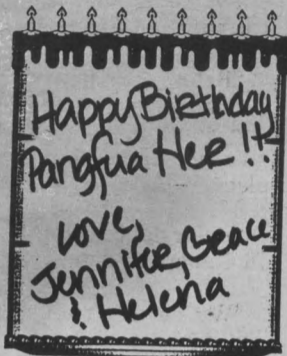 Happy Birthday
Pangfua Her !!
Love,
Jennifer, Grace
& Helena